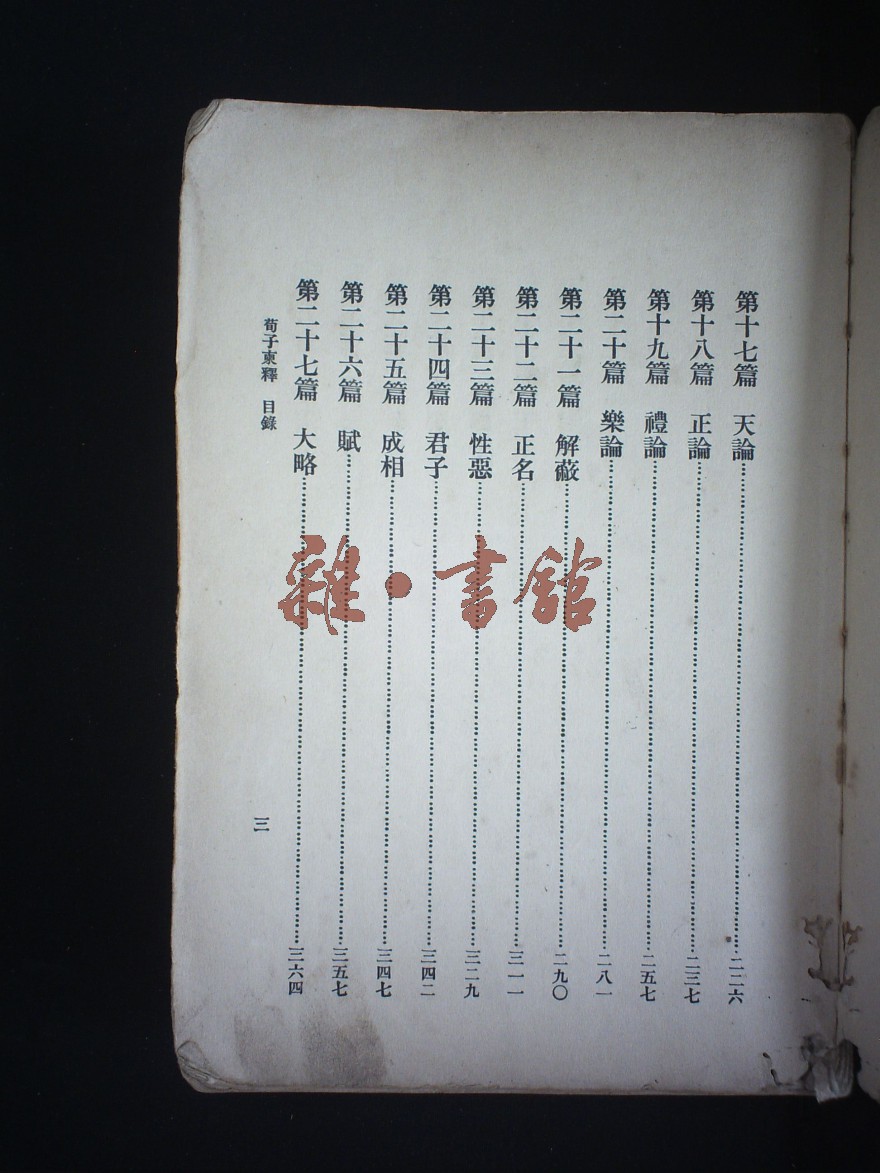 第十七篇　天論……二二六
第十八篇　正論……二三七
第十九篇　禮論……二五七
第二十篇　樂論……二八一
第二十一篇　解蔽……二九〇
第二十二篇　正名……三一一
第二十三篇　性惡……三二九
第二十四篇　君子……三四二
第二十五篇　成相……三四七
第二十六篇　賦……三五七
第二十七篇　大略……三六四
荀子柬釋　目錄
三
雜・書館